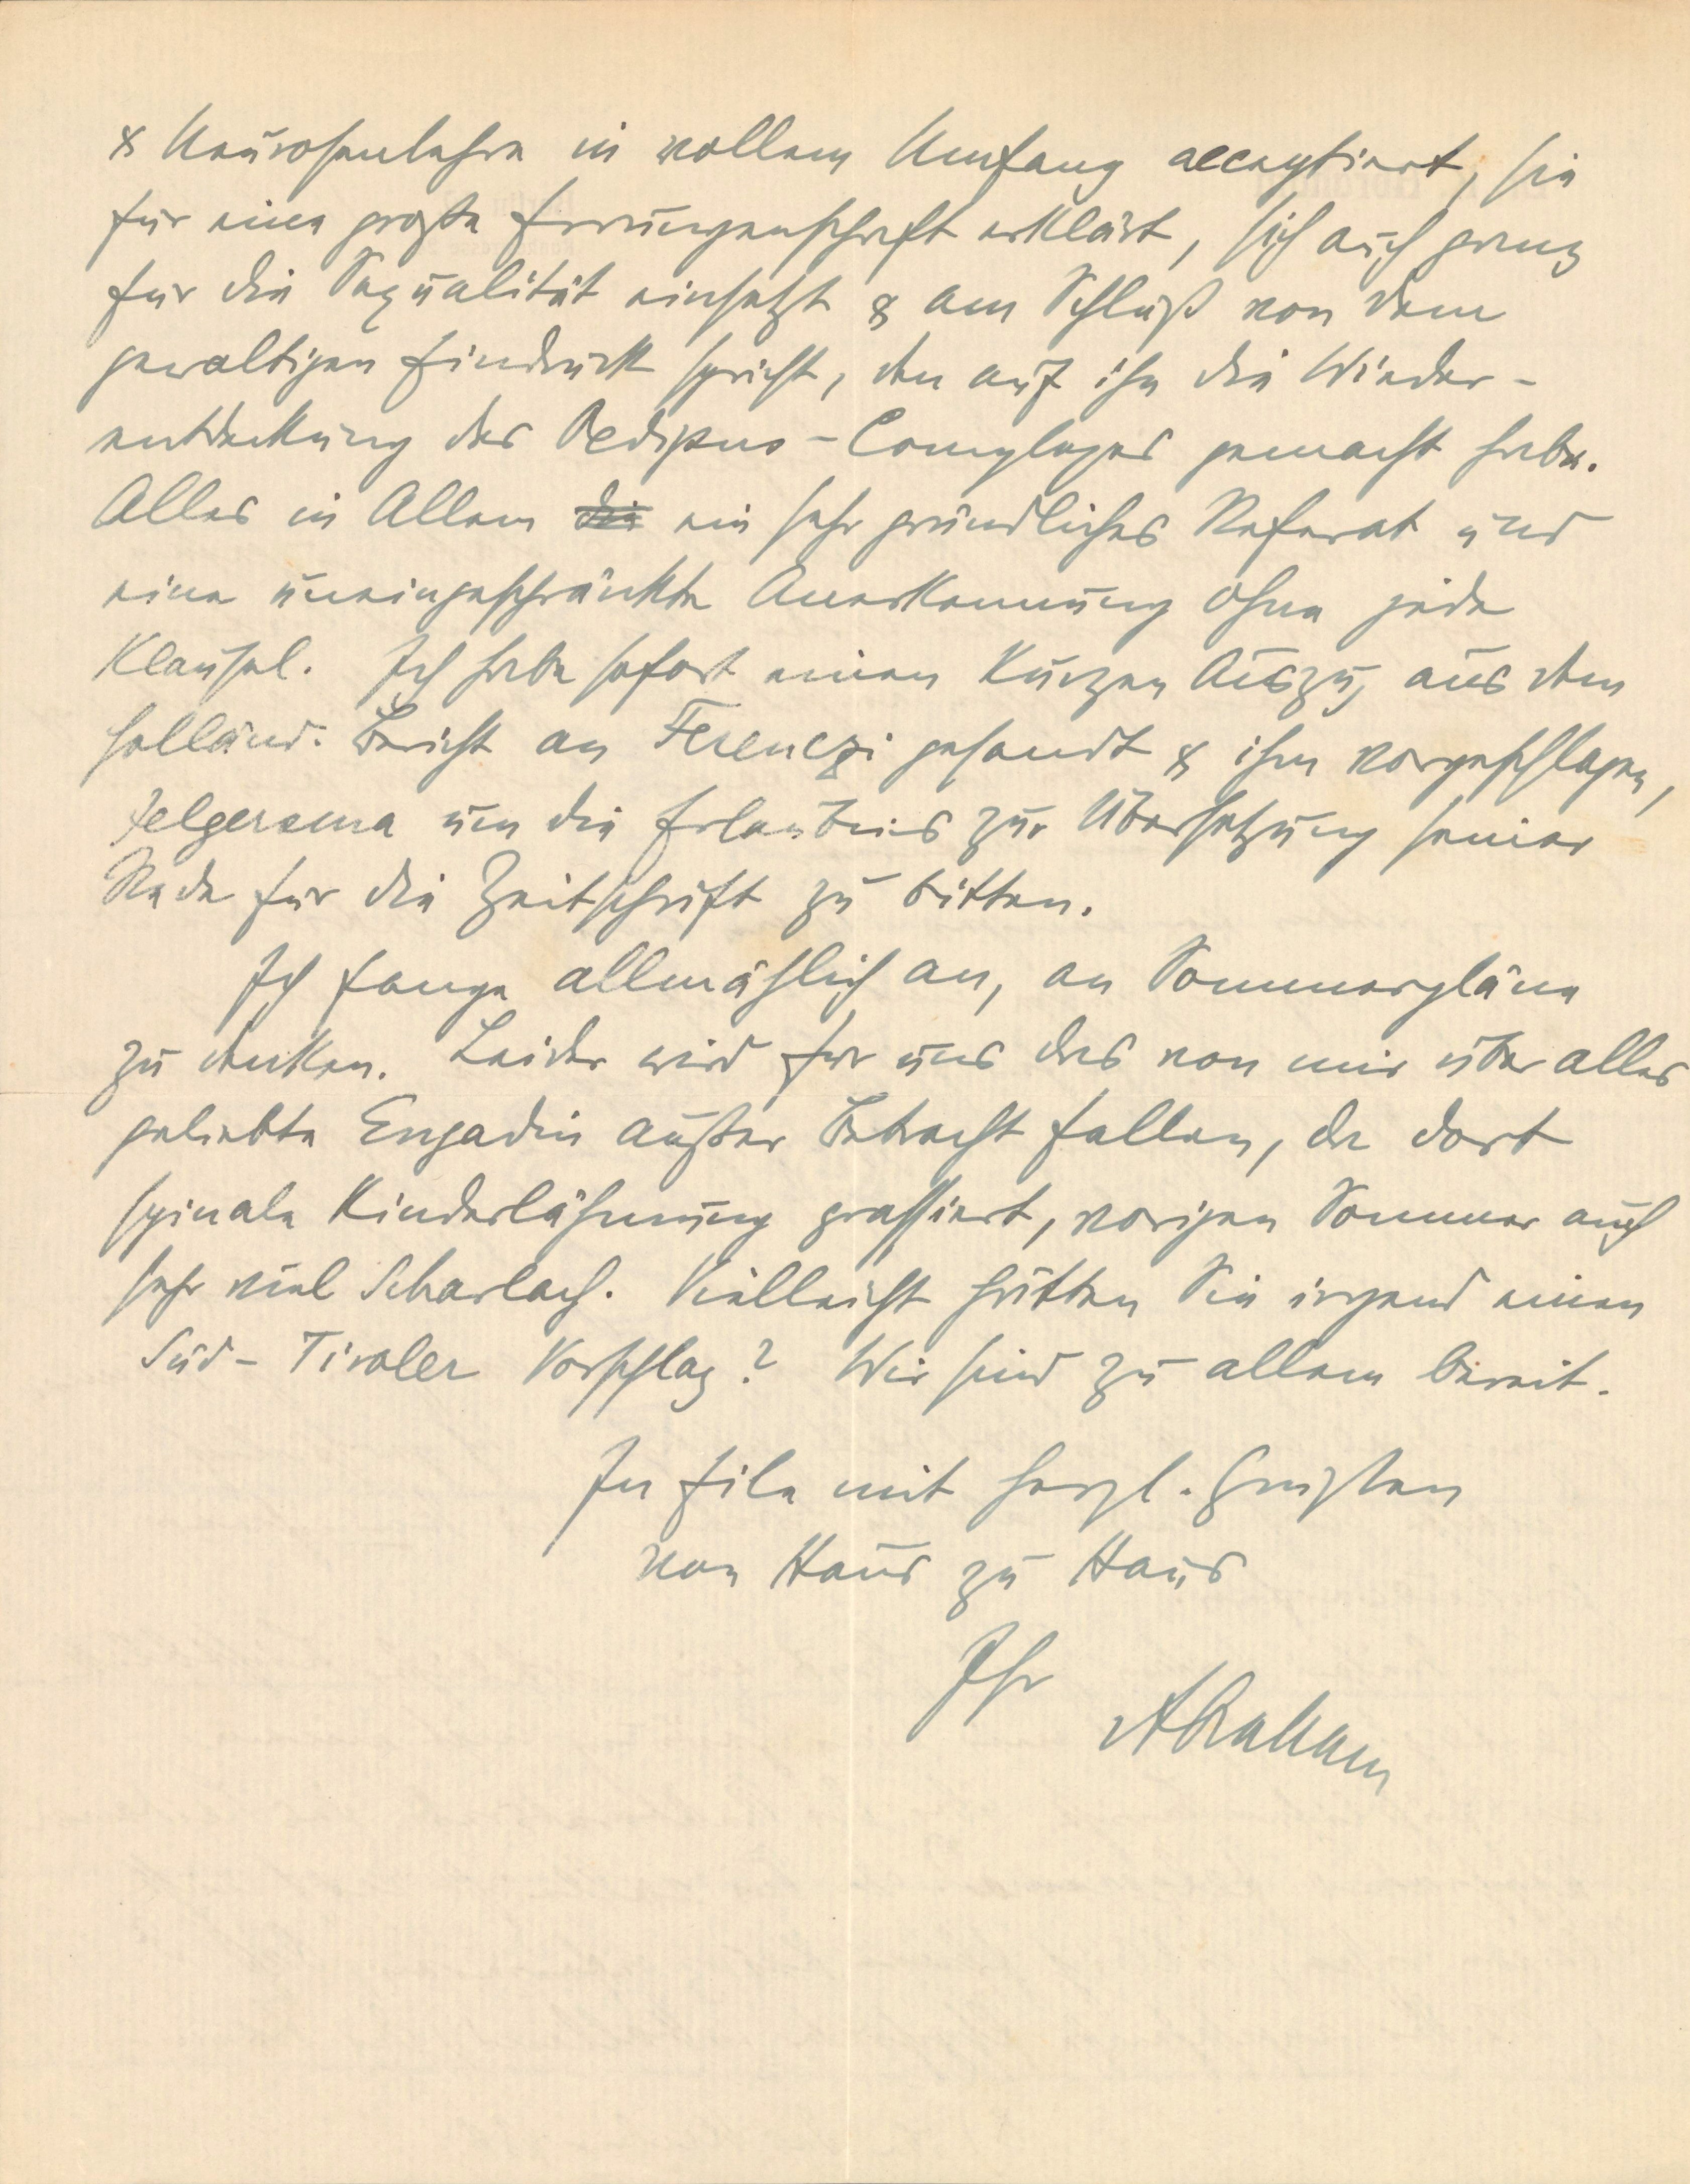 & Neurosenlehre in vollem Umfang acceptiert, sie
für eine große Errungenschaft erklärt, sich auch ganz
für die Sexualität einsetzt & am Schluß von dem
gewaltigen Eindruck spricht, den auf ihn die Wieder-
entdeckung des Oedipus-Complexes gemacht habe.
Alles in Allem die ein sehr gründliches Referat und
eine uneingeschränkte Anerkennung ohne jede
Klausel. Ich habe sofort einen kurzen Auszug aus dem
holländ. Bericht an Ferenczi gesandt & ihm vorgeschlagen,
Jelgersma um die Erlaubnis zur Übersetzung seiner
Rede für die Zeitschrift zu bitten.
Ich fange allmählich an, an Sommerpläne
zu denken. Leider wird für uns das von mir über alles
geliebte Engadin außer Betracht fallen, da dort
spinale Kinderlähmung grassiert, vorigen Sommer auch
sehr viel Scharlach. Vielleicht hätten Sie irgend einen
Süd-Tiroler Vorschlag? Wir sind zu allem bereit.
In Eile mit herzl. Grüßen
von Haus zu Haus
Ihr
Abraham